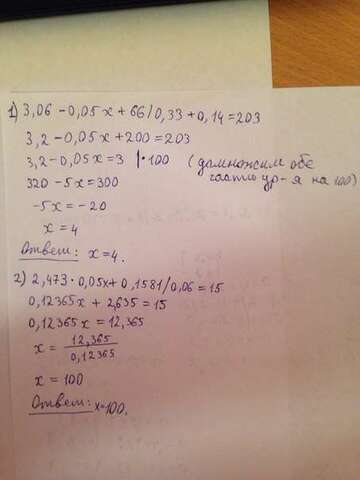 1) 3,06 - 0,05x + 66/0,33 + 0,14 = 203
3,2 - 0,05x + 200 = 203
3,2 - 0,05x = 3 |·100 (домножим обе
части ур-я на 100)
320 - 5x = 300
-5x = -20
x = 4
Ответ: x = 4.
2) 2,473 · 0,05x + 0,1581/0,06 = 15
0,12365x + 2,635 = 15
0,12365x = 12,365
x = 12,365/0,12365
x = 100
Ответ: x=100.